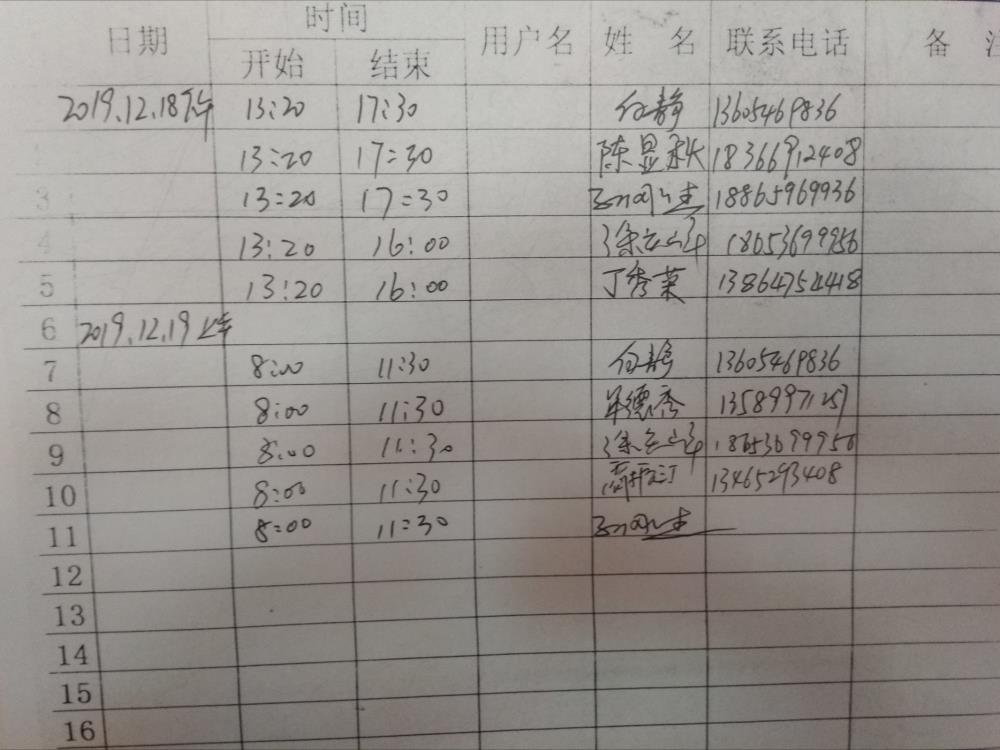 日期 时间 用户名 姓 名 联系电话 备
开始 结束
2019.12.18下午 13:20 17:30 付静 13605469836
13:20 17:30 陈显 18366912408
3 13:20 17:30 18865969936
4 13:20 16:00 18653699956
5 13:20 16:00 丁秀荣 13864754418
6 2019.12.19上午
7 8:00 11:30 付静 13605469836
8 8:00 11:30 德秀
9 8:00 11:30 18653699956
10 8:00 11:30 13465293408
11 8:00 11:30
12
13
14
15
16